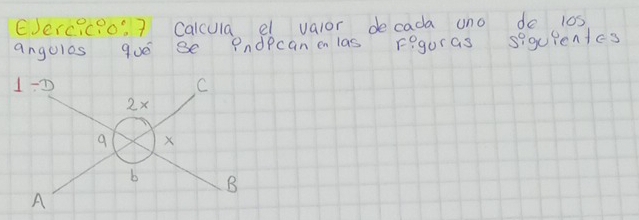 Ejercicio: 7 Calcula el valor de cada uno de los
angulos qué se indican en las Figuras siguientes
1-D C
2x
a x
b
A B